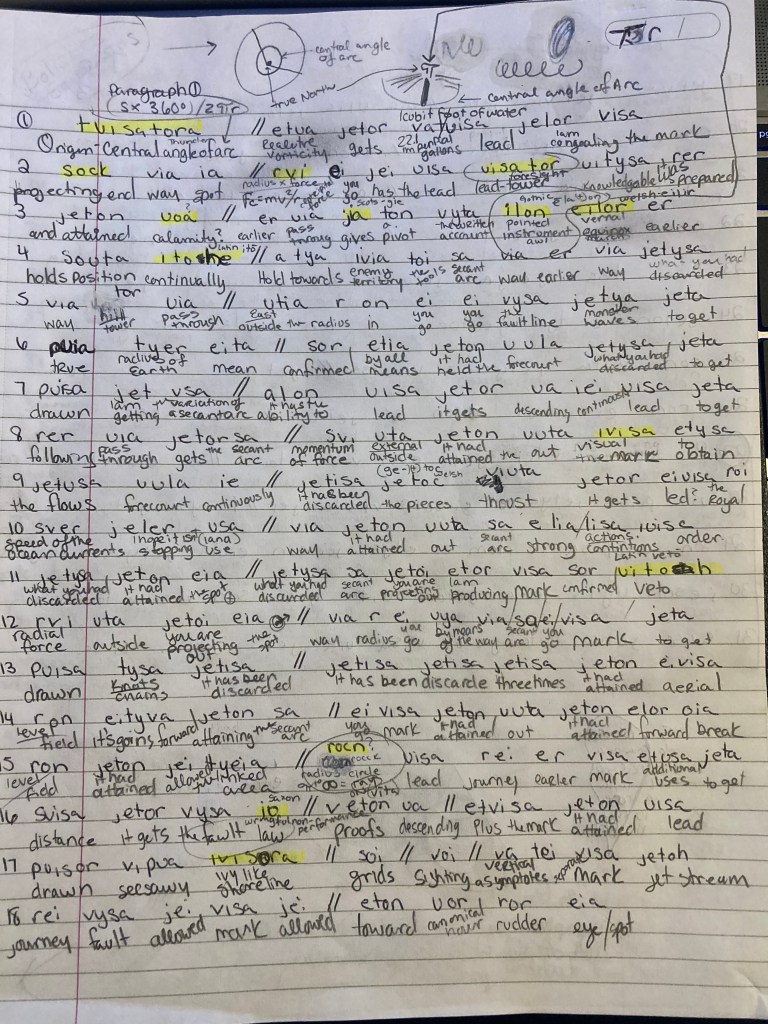 central angle of arc
πr
Paragraph ①
(s x 360°)/2πr
true North
central angle of Arc
1 cubit foot of water
① tvisatora // etva jetor va/visa jelor visa
Origin-Central angle of arc vorticity gets 22.1 imperial gallons lead Iam congealing the mark
2 sock via ia // rvi ei jei visa visa tor vitysa rer
projecting end way spot radius x force Fc=mv²/r you go has the lead foresight lead-tower knowledgable was prepared
3 jeton voa // er via ja ton vyta ilon eilor er
and attained calamity? earlier pass throug gives a pivot the written account pointed instrument awl vernal equinox earlier
4 sovta itoshe // a tya ivia toi sa via er via jetysa
holds position continually Hold towards enemy territory the tools secant arc way earlier way what you had discarded
5 via tor via // utia r on ei ei vysa jetya jeta
way tower pass through East outside the radios in you go you go the faultline monster waves to get
6 pvia tyer eita // sor etia jeton vula jetysa jeta
true radives of Earth mean confirmed by all means it had held the forecourt what you had discarded to get
7 pvisa jet vsa // alon visa jetor va iei visa jeta
drawn Iam getting the variation of a secant arc it has the ability to lead it gets descending continously lead to get
8 rer via jetorsa // svi uta jeton vuta ivisa etysa
following pass through gets the secant arc momentum of force external outside it had attained the out visual the mark to obtain
9 jetusa vula ie // jetisa jetoc viuta jetor eivisa roi
the flows forecourt continuously it has been discarded the pieces thrust it gets led? the Royal
10 sver jeler usa // via jeton vuta sa e lia/lisa ivise
speed of the ocean currents stopping use way it had attained out secant arc strong actions continions order
Latin veto
11 jetysa jeton eia // jetysa sa jetoi etor visa sor vitoh
what you had discarded it had attained the spot what you had discarded secant arc you are projecting out Iam producing mark confirmed veto
12 rvi uta jetoi eia // via r ei vya via/sa/ei/visa jeta
radial force outside you are projecting out the spot way radius go you by means of the way secant arc you go mark to get
13 pvisa tysa jetisa // jetisa jetisa jetisa jeton eivisa
drawn knots chains it has been discarded it has been discarded threetimes it had attained aerial
14 ron eityva jeton sa // ei visa jeton vuta jeton elor oia
level field it's going forward attaining the secant arc you go mark it had attained out it had attained forward break
15 ron jeton jei tyeia // rocn visa rei er visa etusa jeta
level field it had attained allowed area radius circle lead journey earlier mark additional uses to get
16 svisa jetor vysa io // veton va // etvisa jeton visa
distance it gets the fault law saxon wrongful non-performance proofs descending plus the mark it had attained lead
17 pvisor vipva ivisora // soi // voi // va tei visa jetoh
drawn seesawy ivy like shoreline grids sighting vertical asymptotes mark jet stream
18 rei vysa jei visa jei // eton vor ror eia
journey fault allowed mark allowed toward canonical hour rudder eye/spot